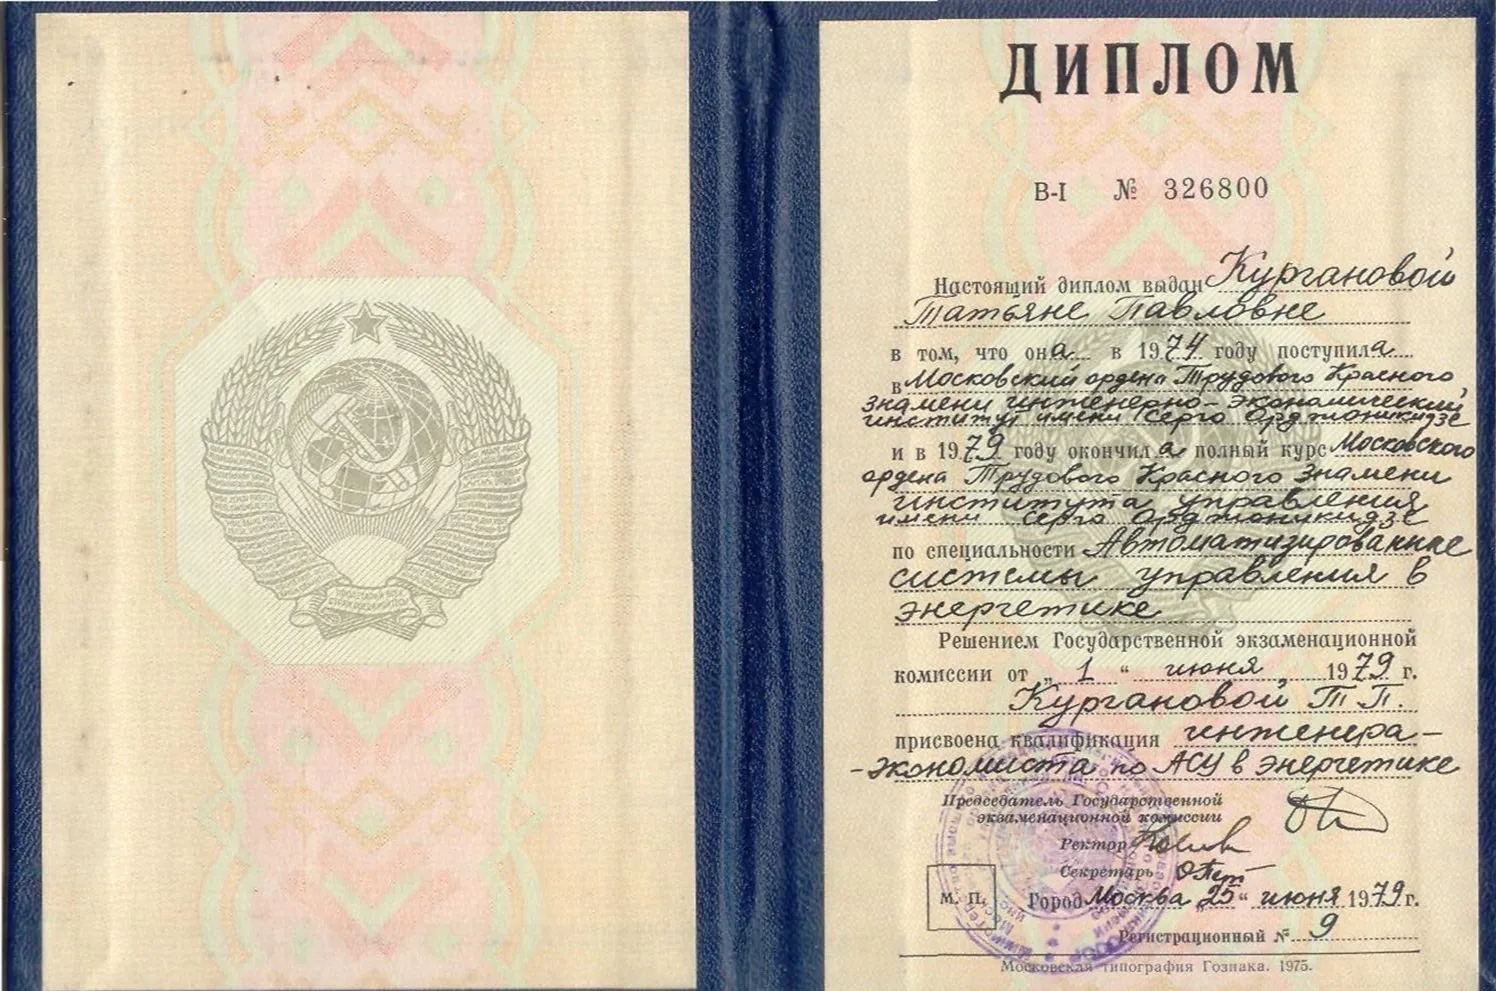 ДИПЛОМ
В-I № 326800
Настоящий диплом выдан Кургановой
Татьяне Павловне
в том, что она в 1974 году поступила
в Московский ордена Трудового Красного
Знамени инженерно-экономический
институт имени Серго Орджоникидзе
и в 1979 году окончила полный курс Московского
ордена Трудового Красного Знамени
института управления
имени Серго Орджоникидзе
по специальности Автоматизированные
системы управления в
энергетике
Решением Государственной экзаменационной
комиссии от „1“ июня 1979 г.
Кургановой Т.П.
присвоена квалификация инженера-
-экономиста по АСУ в энергетике
Председатель Государственной
экзаменационной комиссии
Ректор
Секретарь
М. П. Город Москва „25“ июня 1979 г.
Регистрационный № 9
Московская типография Гознака. 1975.